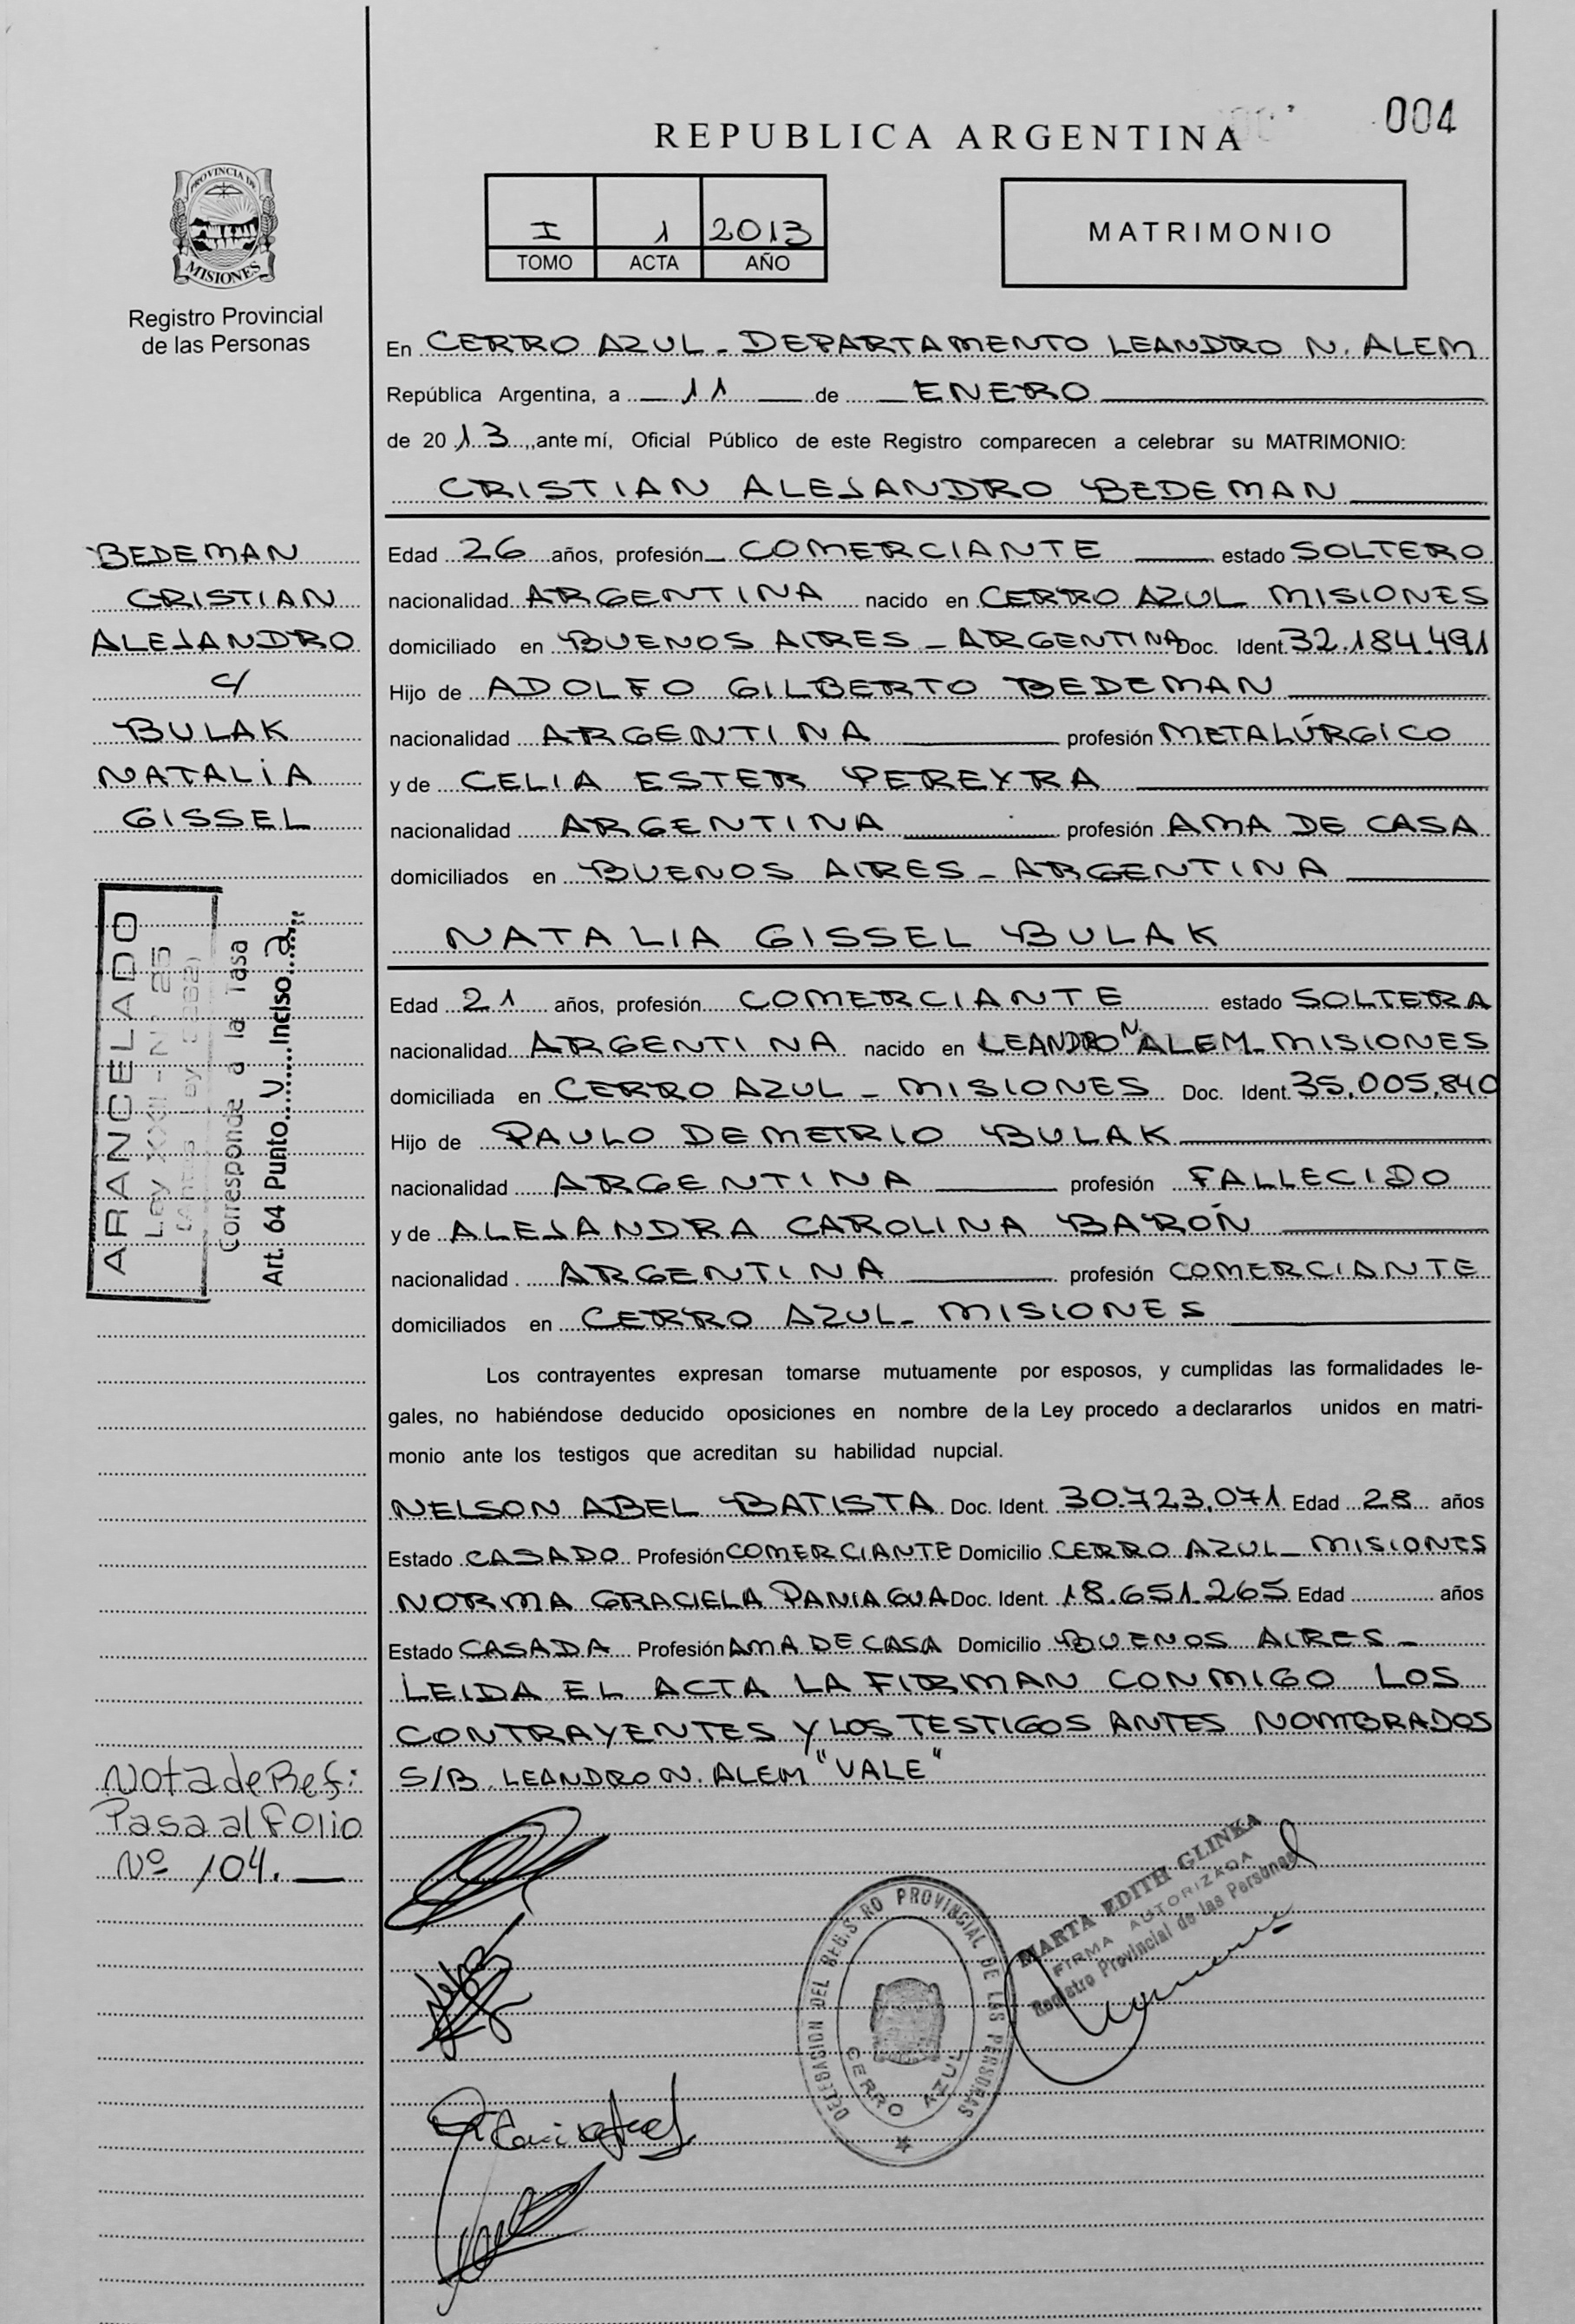 004
REPUBLICA ARGENTINA
PROVINCIA DE
MISIONES
Registro Provincial
de las Personas
I 1 2013
TOMO ACTA AÑO
MATRIMONIO
En CERRO AZUL - DEPARTAMENTO LEANDRO N. ALEM
República Argentina, a 11 de ENERO
de 20 13, ante mí, Oficial Público de este Registro comparecen a celebrar su MATRIMONIO:
CRISTIAN ALEJANDRO BEDEMAN
BEDEMAN
CRISTIAN
ALEJANDRO
c/
BULAK
NATALIA
GISSEL
Edad 26 años, profesión COMERCIANTE estado SOLTERO
nacionalidad ARGENTINA nacido en CERRO AZUL MISIONES
domiciliado en BUENOS AIRES - ARGENTINA Doc. Ident. 32.184.491
Hijo de ADOLFO GILBERTO BEDEMAN
nacionalidad ARGENTINA profesión METALÚRGICO
y de CELIA ESTER PEREYRA
nacionalidad ARGENTINA profesión AMA DE CASA
domiciliados en BUENOS AIRES - ARGENTINA
NATALIA GISSEL BULAK
Edad 21 años, profesión COMERCIANTE estado SOLTERA
nacionalidad ARGENTINA nacido en LEANDRO N ALEM - MISIONES
domiciliada en CERRO AZUL - MISIONES Doc. Ident. 35.005.840
Hijo de PAULO DEMETRIO BULAK
nacionalidad ARGENTINA profesión FALLECIDO
y de ALEJANDRA CAROLINA BARÓN
nacionalidad ARGENTINA profesión COMERCIANTE
domiciliados en CERRO AZUL - MISIONES
ARANCELADO
Ley XXII - N° 25
(Antes Ley
Corresponde a la Tasa
Art. 64 Punto V Inciso a
Los contrayentes expresan tomarse mutuamente por esposos, y cumplidas las formalidades le-
gales, no habiéndose deducido oposiciones en nombre de la Ley procedo a declararlos unidos en matri-
monio ante los testigos que acreditan su habilidad nupcial.
NELSON ABEL BATISTA Doc. Ident. 30.723.071 Edad 28 años
Estado CASADO Profesión COMERCIANTE Domicilio CERRO AZUL - MISIONES
NORMA GRACIELA PANIAGUA Doc. Ident. 18.651.265 Edad años
Estado CASADA Profesión AMA DE CASA Domicilio BUENOS AIRES -
LEIDA EL ACTA LA FIRMAN CONMIGO LOS
CONTRAYENTES Y LOS TESTIGOS ANTES NOMBRADOS
S/B LEANDRO N. ALEM "VALE"
Nota de Ref:
Pasa al Folio
Nº 104.
DELEGACION DEL REGISTRO PROVINCIAL DE LAS PERSONAS
CERRO AZUL
MARTA EDITH GLINKA
FIRMA AUTORIZADA
Registro Provincial de las Personas